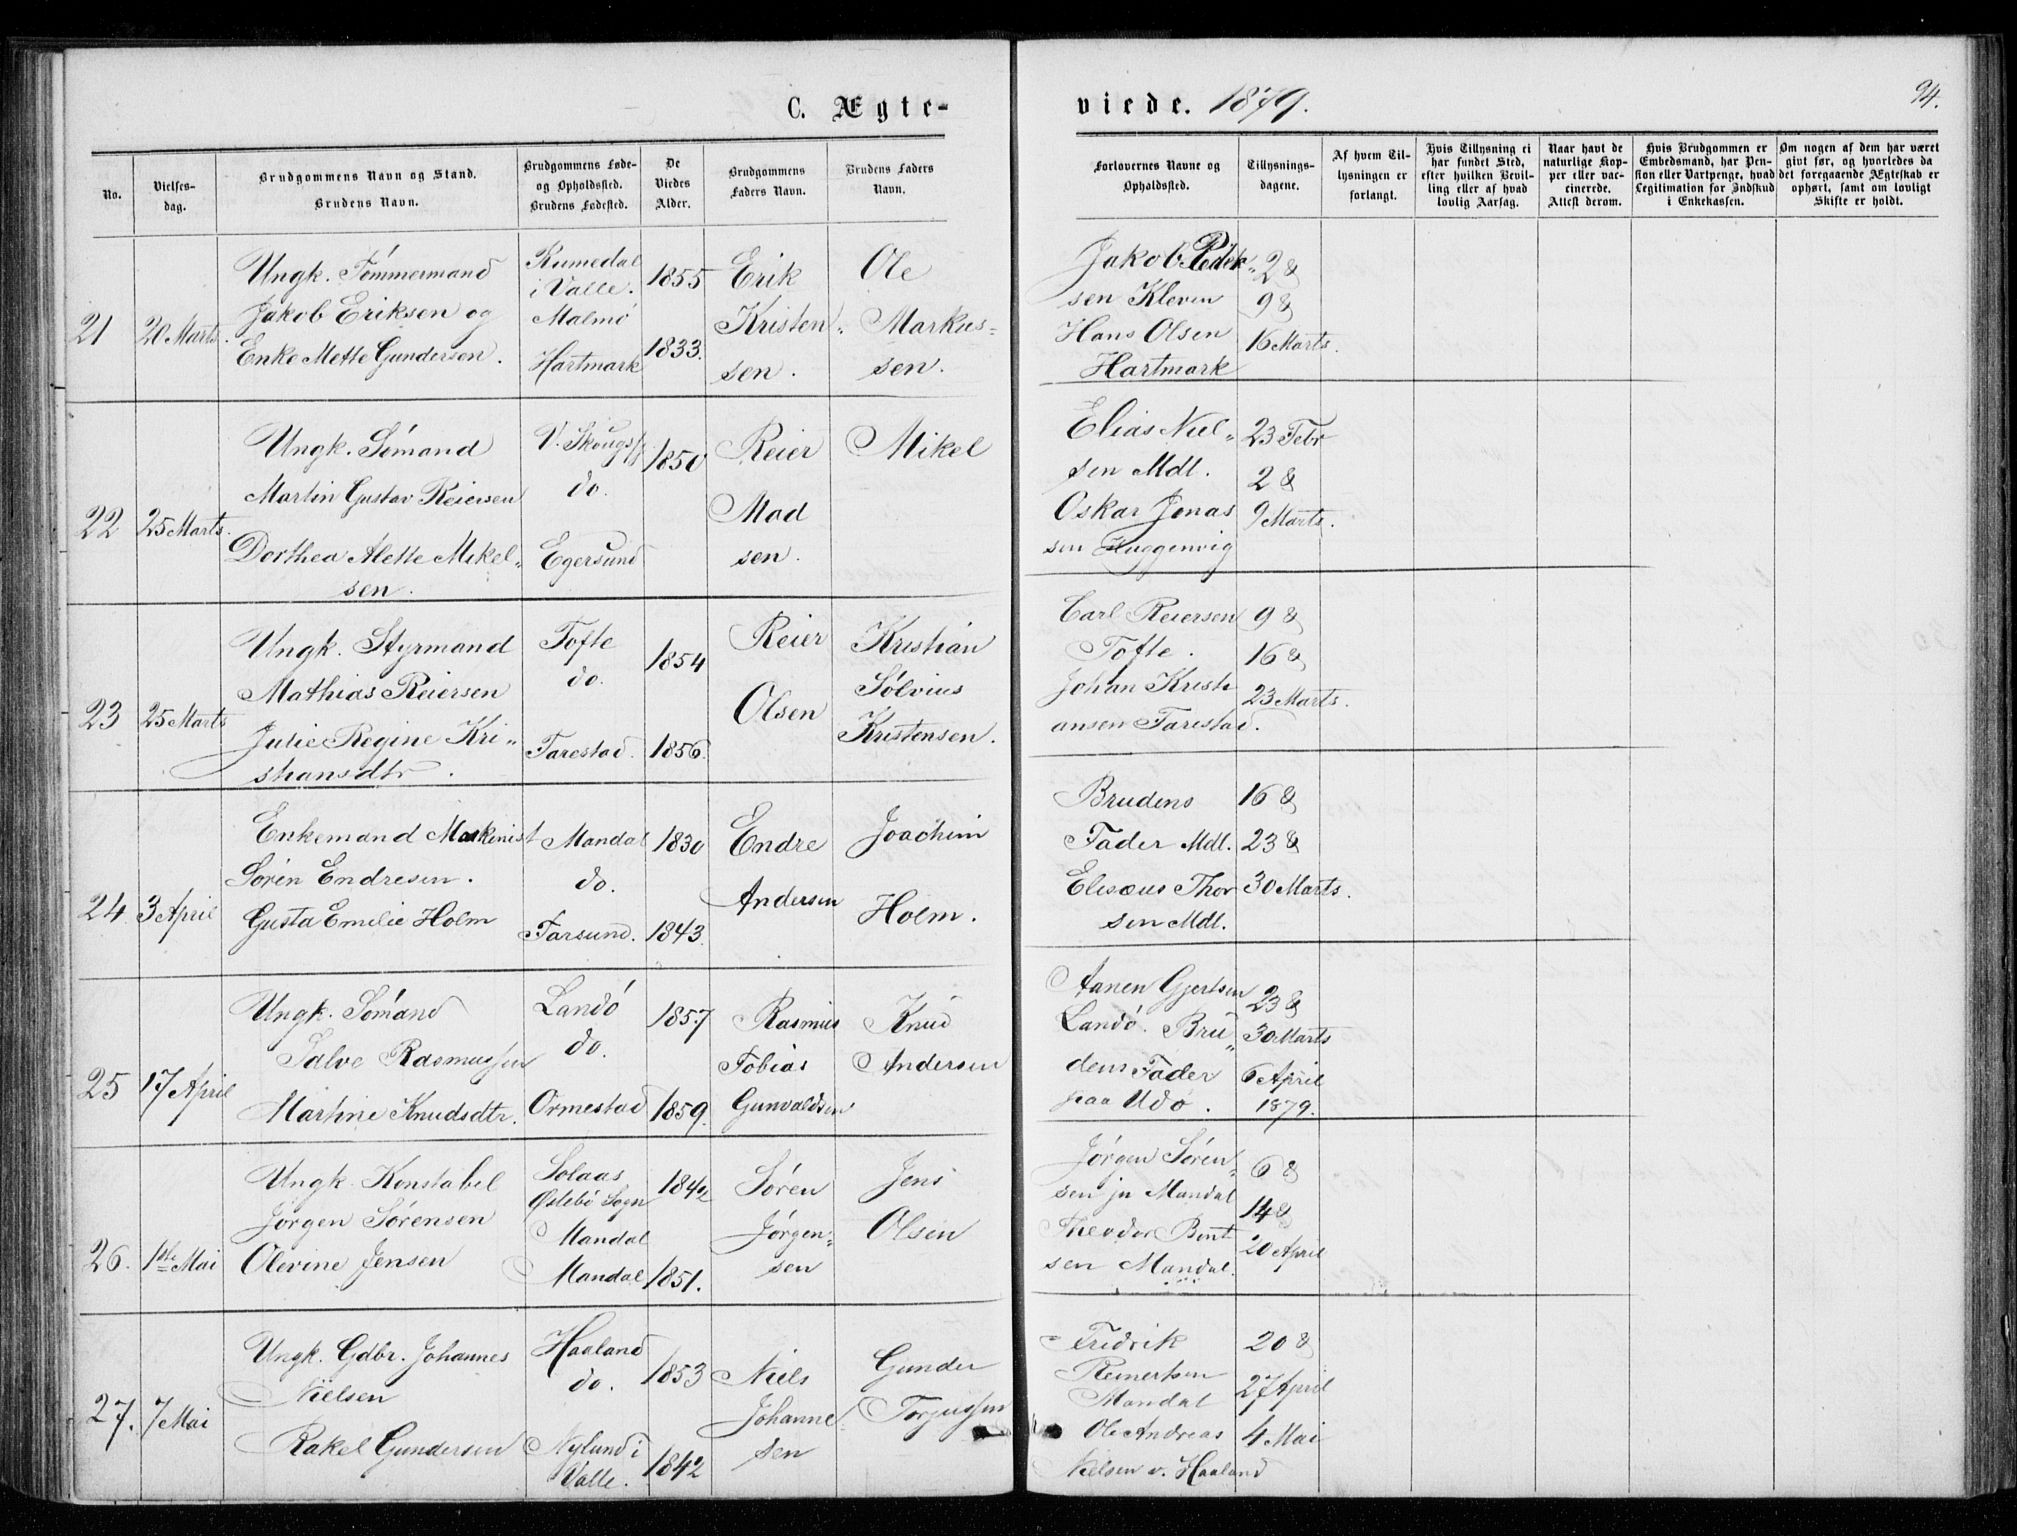 C. Ægte-
viede. 1879.
94.
No.
Vielses-
dag.
Brudgommens Navn og Stand.
Brudens Navn.
Brudgommens Føde-
og Opholdssted.
Brudens Fødested.
De
Viedes
Alder.
Brudgommens
Faders Navn.
Brudens Faders
Navn.
Forlovernes Navne og
Opholdssted.
Tillysnings-
dagene.
Af hvem Til-
lysningen er
forlangt.
Hvis Tillysning ei
har fundet Sted,
efter hvilken Bevil-
ling eller af hvad
lovlig Aarsag.
Naar havt de
naturlige Kop-
per eller vac-
cinerede.
Attest derom.
Hvis Brudgommen er
Embedsmand, har Pen-
sion eller Vartpenge, hvad
Legitimation for Indskud
i Enkekassen.
Om nogen af dem har været
givt før, og hvorledes da
det foregaaende Ægteskab er
ophørt, samt om lovligt
Skifte er holdt.
21
20 Marts.
Ungk. Tømmermand
Jakob Eriksen og
Enke Mette Gundersen.
Rumedal
i Valle.
Malmø
Hartmark
1855
1833.
Erik
Kristen-
sen.
Ole
Markus-
sen.
Jakob Peder-
sen Kleven
Hans Olsen
Hartmark
2 &
9 &
16 Marts.
22
25 Marts.
Ungk. Sømand
Martin Gustav Reiersen
Dorthea Alette Mikel-
sen.
V. Skougsf
do.
Egersund
1850
Reier
Mad
sen.
Mikel
Elias Niel-
sen Mdl.
Oskar Jonas
sen Huggenvig
23 Febr
2 &
9 Marts.
23
25 Marts
Ungk. Styrmand
Mathias Reiersen
Julie Regine Kri-
stiansdtr.
Tofte
do.
Tarestad.
1854
1856.
Reier
Olsen
Kristian
Sølvius
Kristensen.
Carl Reiersen
Tofte.
Johan Kristi
ansen Tarestad.
9 &
16 &
23 Marts.
24
3 April
Enkemand Maskinist
Sørin Endresen.
Gusta Emilie Holm
Mandal
do.
Farsund.
1830
1843.
Endre
Andersen
Joachim
Holm.
Brudens
Fader Mdl.
Elisæus Thor
sen Mdl.
16 &
23 &
30 Marts.
25
17 April
Ungk. Sømand
Salve Rasmussen
Martine Knudsdtr.
Landø
do.
Ormestad
1857
1859.
Rasmus
Tobias
Gunvaldsen
Knud
Andersen
Aanen Gjertsen
Landø. Bru-
dens Fader
paa Udø.
23 &
30 Marts
6 April
1879.
26.
1ste Mai
Ungk. Konstabel
Jørgen Sørensen
Olevine Jensen
Solaas
Øslebø Sogn
Mandal
Mandal
1842
1851.
Søren
Jørgen-
sen
Jens
Olsen
Jørgen Søren-
sen jn Mandal
Theodor Bent
sen Mandal.
6 &
14 &
20 April
27.
7 Mai
Ungk. Gdbr. Johannes
Nielsen
Rakel Gundersen
Haaland
do.
Nylund i
Valle.
1853
1842
Niels
Johanne
sen
Gunder
Torjussen
Fredrik
Reinertsen
Mandal
Ole Andreas
Nielsen v. Haaland
20 &
27 April
4 Mai